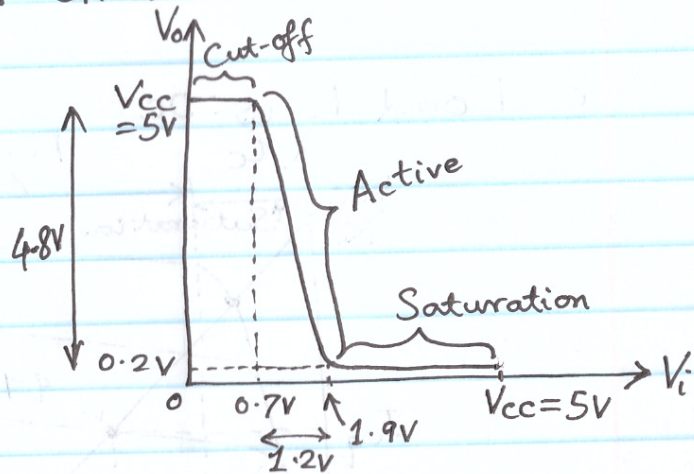 Vo
Cut-off
Vcc
=5V
Active
4.8V
Saturation
0.2V
Vi
0
0.7V
1.9V
Vcc=5V
1.2V